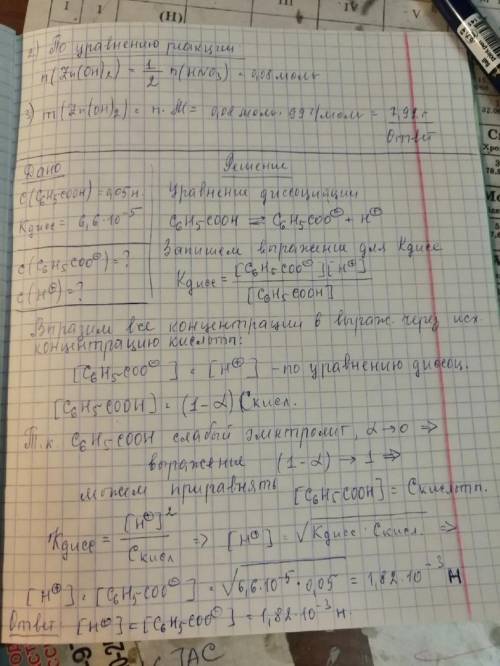 (H)
2) По уравнению реакции
n(Zn(OH)₂) = 1/2 n(HNO₃) = 0,08 моль
3) m(Zn(OH)₂) = n · M = 0,08 моль · 99 г/моль = 7,92 г
Ответ
Дано
Решение
C(C₆H₅COOH) = 0,05 н.
Уравнение диссоциации
Kдисс = 6,6·10⁻⁵
C₆H₅COOH ⇌ C₆H₅COO⊖ + H⊕
C(C₆H₅COO⊖) = ?
Запишем выражение для Kдисс
C(H⊕) = ?
Kдисс = [C₆H₅COO⊖][H⊕] / [C₆H₅COOH]
Выразим все концентрации в выраж. через исх.
концентрацию кислоты:
[C₆H₅COO⊖] = [H⊕] - по уравнению диссоц.
[C₆H₅COOH] = (1-α) Cкисл.
Т.к C₆H₅COOH слабый электролит, α→0 ⇒
выражение (1-α) → 1 ⇒
можем приравнять [C₆H₅COOH] = Cкислоты.
Kдисс = [H⊕]² / Cкисл ⇒ [H⊕] = √Kдисс · Cкисл. ⇒
[H⊕] = [C₆H₅COO⊖] = √6,6·10⁻⁵ · 0,05 = 1,82·10⁻³ н
Ответ [H⊕] = [C₆H₅COO⊖] = 1,82·10⁻³ н.